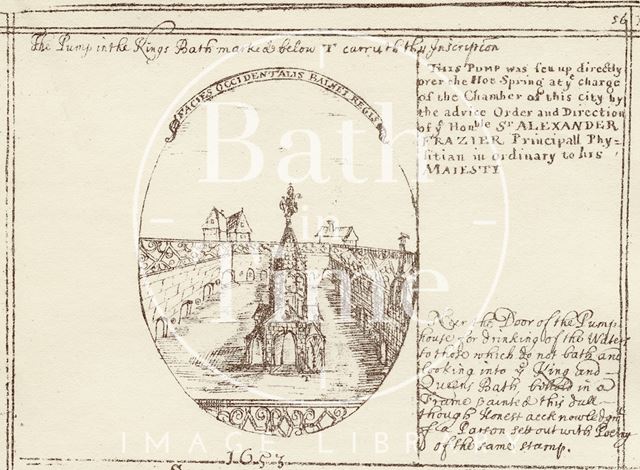 56
The Pump in the Kings Bath marked below T carryeth thy Inscription
FACIES OCCIDENTALIS BALNEI REGIS
THIS PUMP was set up directly
over the Hot Spring at yͤ charge
of the Chamber of this city by
the advice Order and Direction
of yͤ Honble Sr ALEXANDER
FRAZIER Principall Phy=
sitian in ordinary to his
MAIESTY
Bath
in
Time
Near the Door of the Pump
house for drinking of the Waters
to those which do not bath and
looking into yͤ King and
Queens Bath behold in a
Frame painted this dull
though Honest acknowledgmt
of a Parson set out with Poetry
of the same stamp.
IMAGE LIBRARY
1653